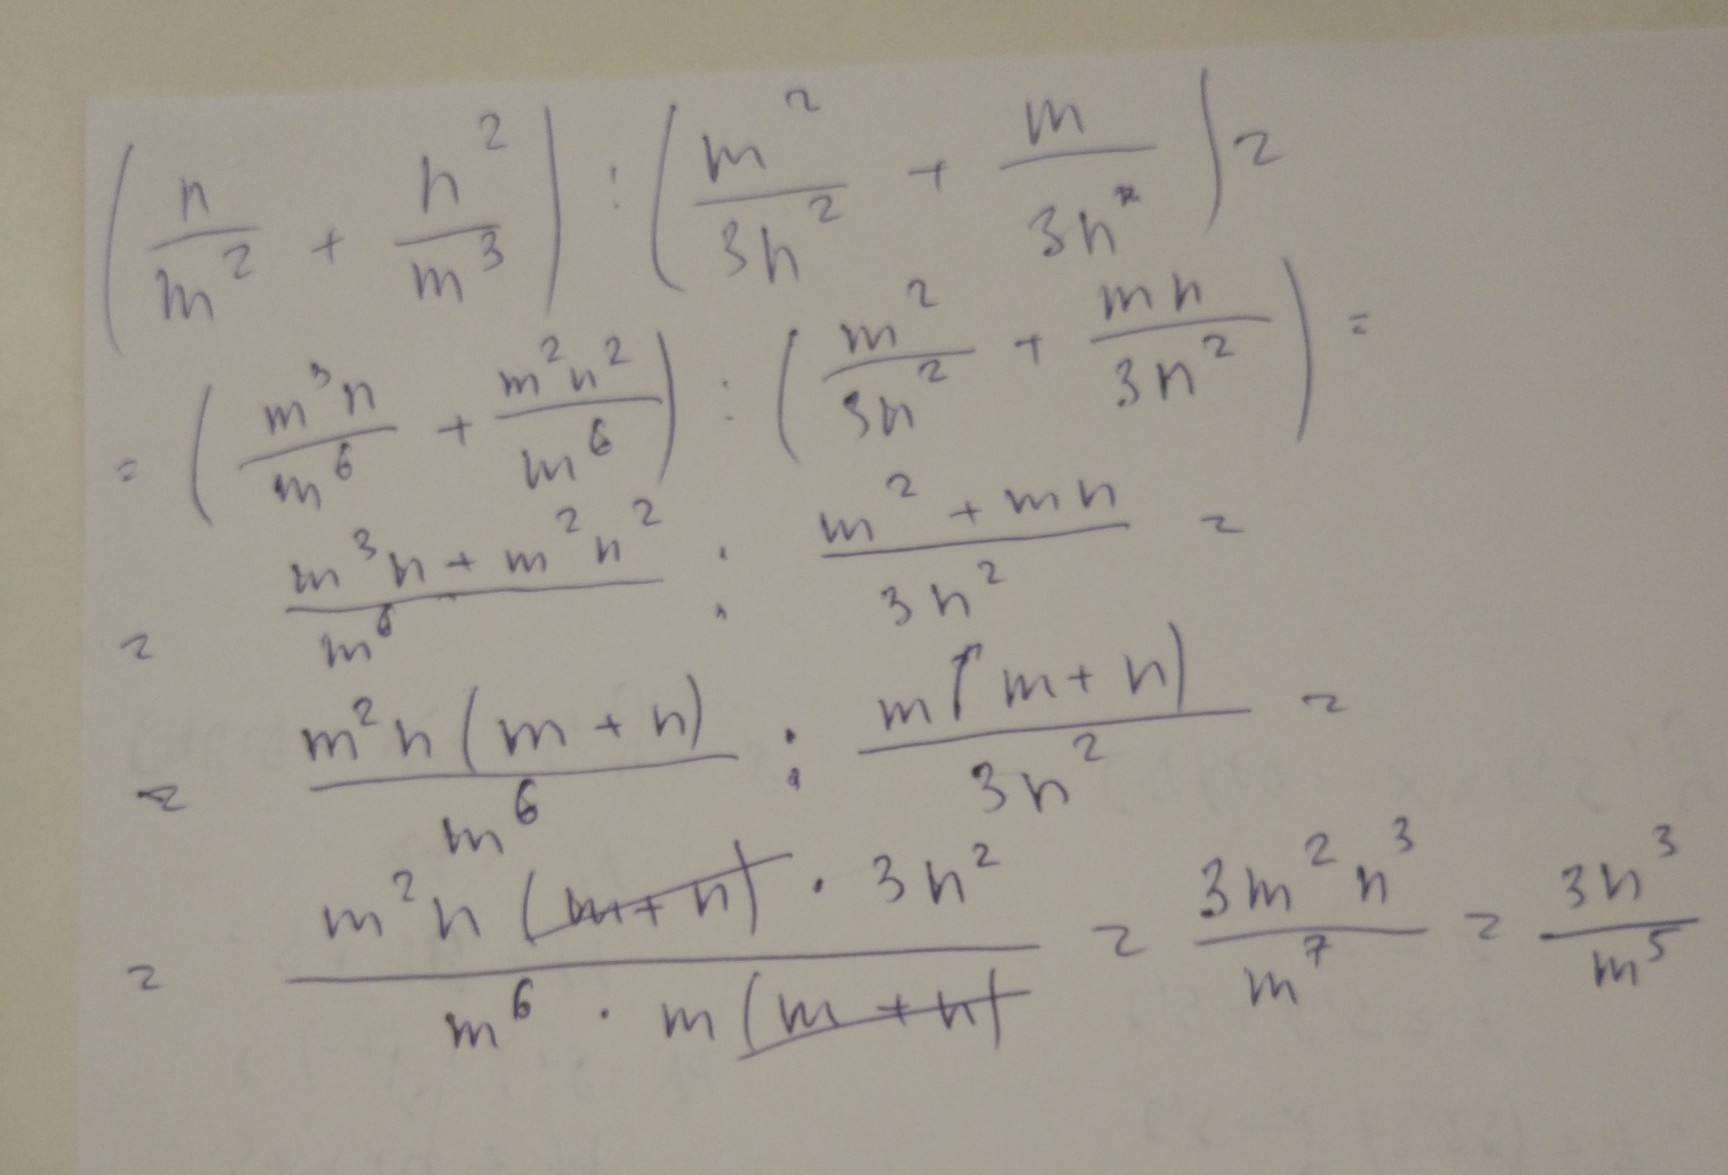 (n/m² + n²/m³) : (m²/3n² + m/3n) =
= (m³n/m⁶ + m²n²/m⁶) : (m²/3n² + mn/3n²) =
= (m³n + m²n²)/m⁶ : (m² + mn)/3n² =
= m²n(m + n)/m⁶ : m(m + n)/3n² =
= m²n(m + n) · 3n²/m⁶ · m(m + n) = 3m²n³/m⁷ = 3n³/m⁵